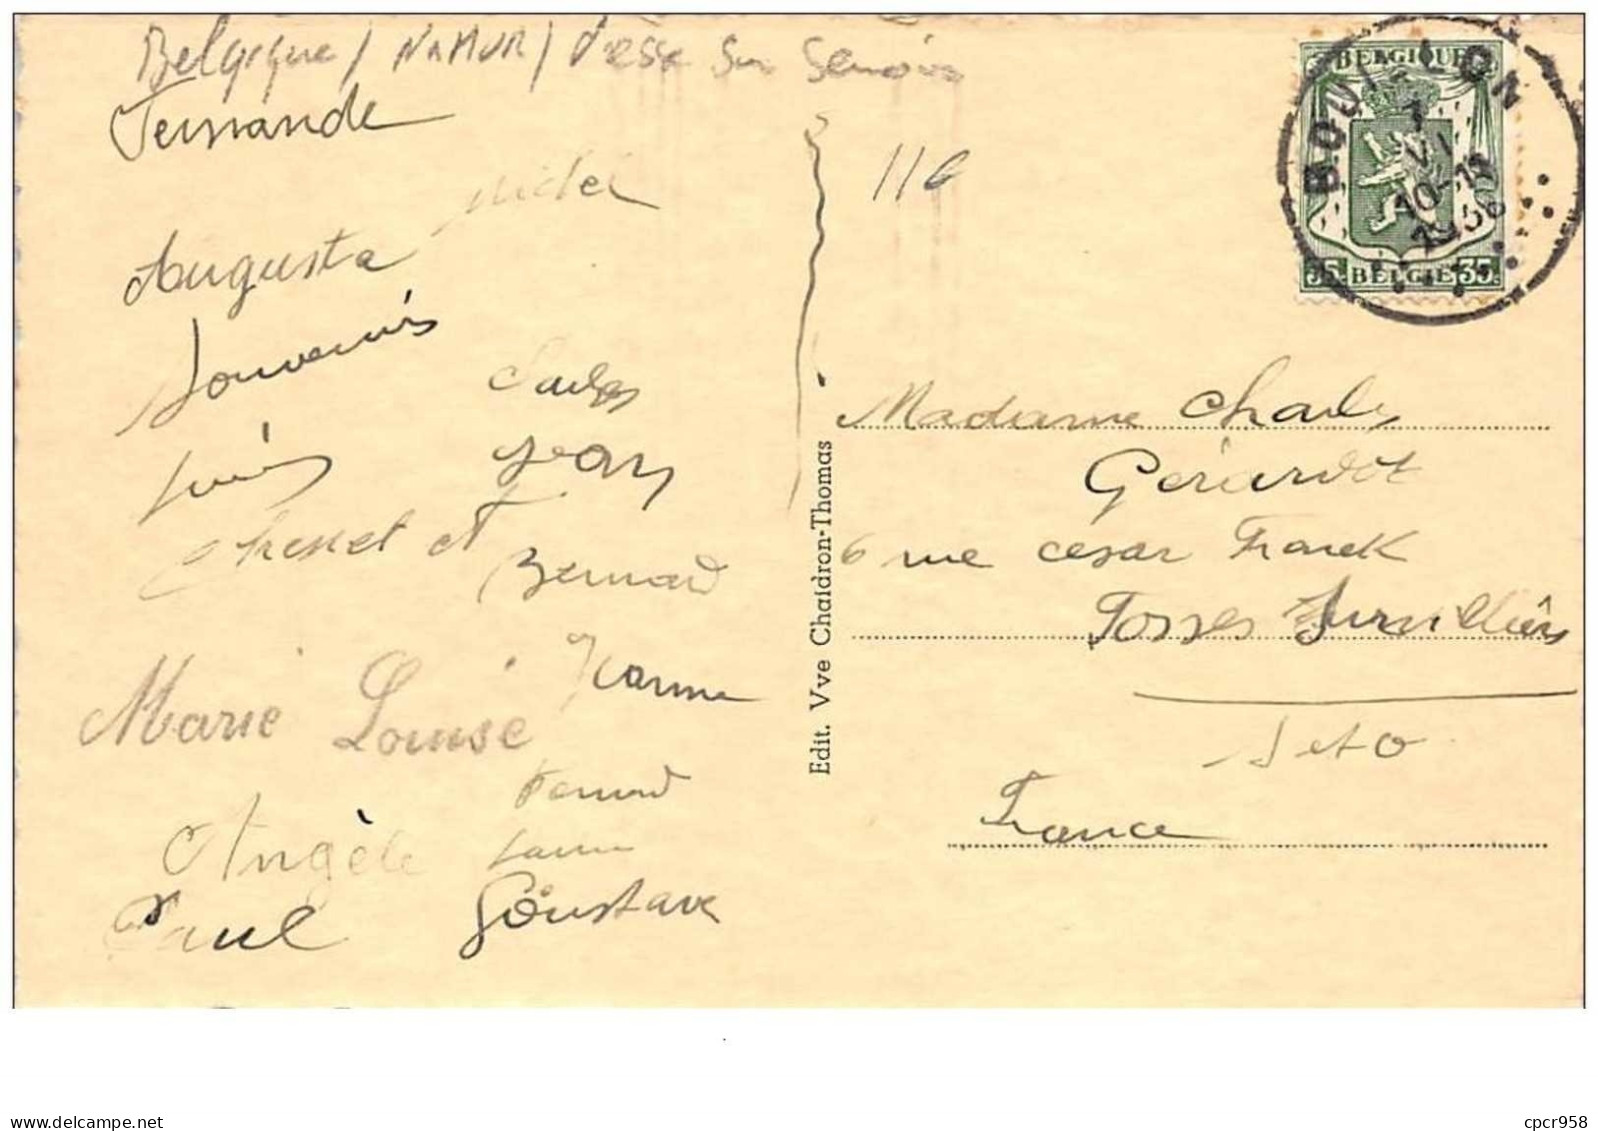 Belgique / NAMUR / Vresse sur Semois
Fernande
Michel
Augusta
Souvenirs
Charles
Jean
et
Bernard
Jeanne
Marie Louise
Fernand
Angèle
Paul
Goustave
116
Edit. Vve Chaidron-Thomas
BELGIQUE
35 BELGIE 35
BOUILLON
7
VI
10-11
1936
Madame Charles
Gérardot
6 rue César Franck
Fosses Survilliers
S et O
France
www.delcampe.net
cpcr958